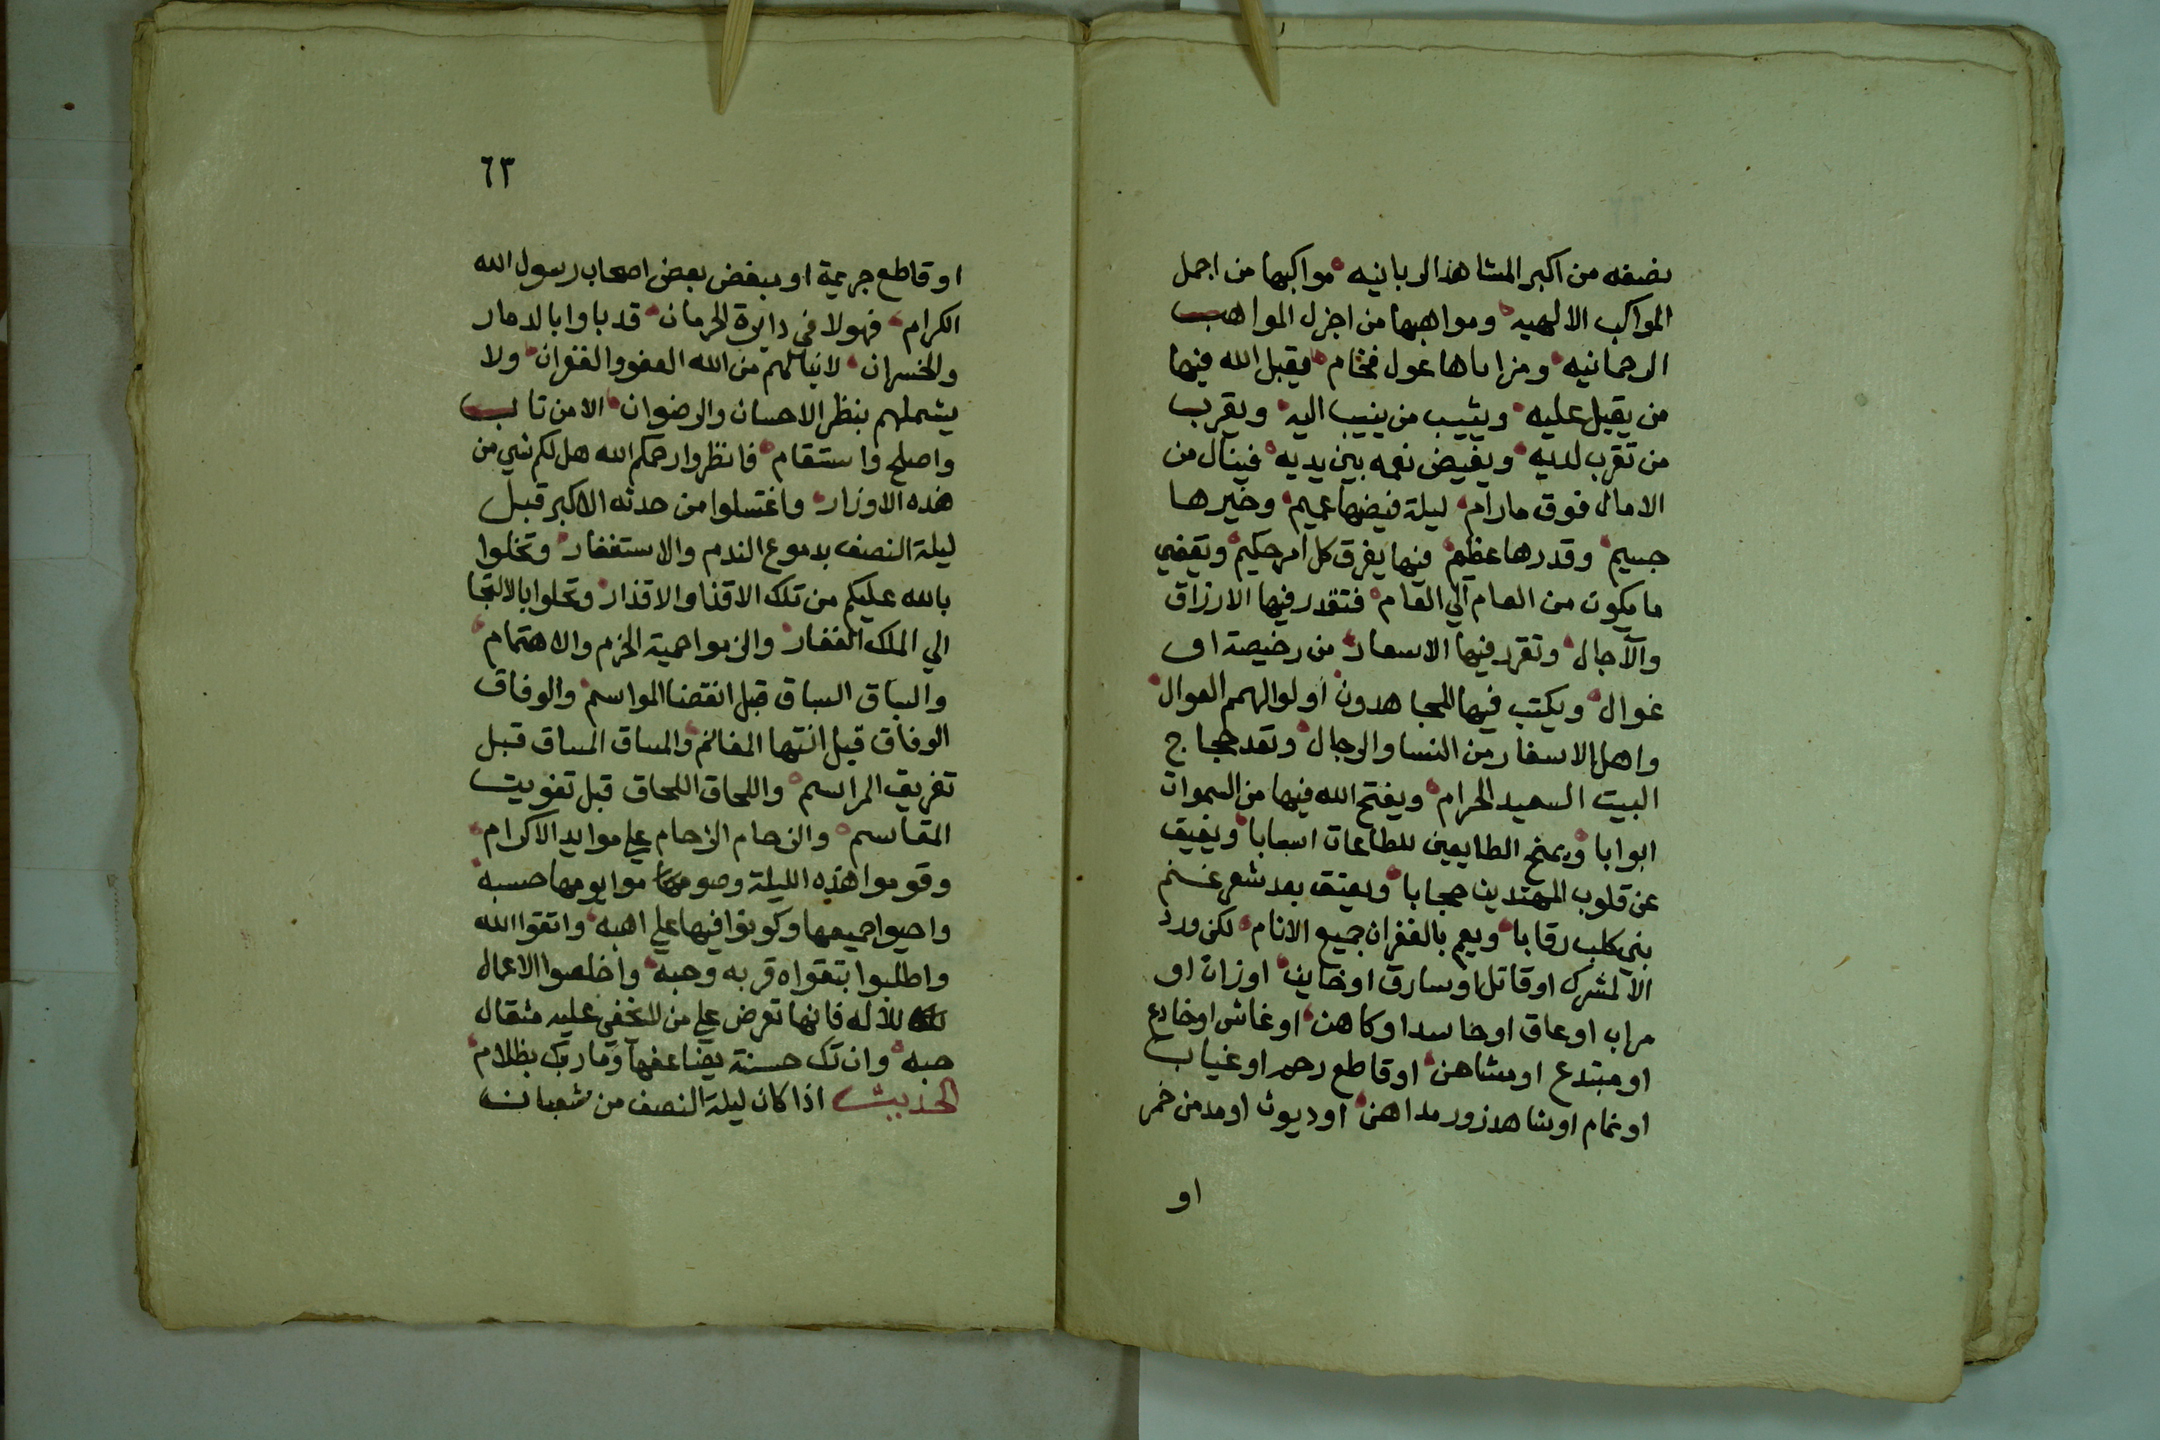 نصفه من اكبر المشاهد الربانيه مواكبها من اجمل
المواكب الالهيه ومواهبها من اجزل المواهب
الرحمانيه ومزاياها عول فخام فيقبل الله فيها
من يقبل عليه ويثيب من ينيب اليه ويقرب
من تقرب لديه ويفيض نعمه بين يديه فينال من
الامال فوق مارام ليلة فيضها عميم وخيرها
جسيم وقدرها عظيم فيها يفرق كل امر حكيم وتقضي
مايكون من العام الي العام فتقدر فيها الارزاق
والآجال وتقرر فيها الاسعار من رخيصة او
غوال ويكتب فيها المجاهدون اولوا الهمم العوال
واهل الاسفار من النسا والرجال وتعد حجاج
البيت السعيد الحرام ويفتح الله فيها من السموات
ابوابا ويمنح الطايعين للطاعات اسبابا
عن قلوب المهتدين حجابا ويعتق بعد شعر غنم
بني كلب رقابا ويعم بالغفران جميع الانام لكن ورد
الا لمشرك او قاتل او سارق او خاين او زان او
مراب او عاق او حاسد او كاهن او غاش او خادع
او مبتدع او مشاحن او قاطع رحم او غياب
او نمام او شاهد زور مداهن او ديوث او مدمن خمر
او
٦٣
او قاطع جريمة او يبغض بعض اصحاب رسول الله
الكرام فهولا في دايرة الحرمان قد باوا بالدمار
والخسران لا ينالهم من الله العفو والغفران ولا
يشملهم بنظر الاحسان والرضوان الا من تاب
واصلح واستقام فانظروا رحمكم الله هل لكم شي من
هذه الاوزار واغتسلوا من حدثه الاكبر قبل
ليلة النصف بدموع الندم والاستغفار وتخلوا
بالله عليكم من تلك الاقذا والاقذار وتحلوا بالالتجا
الي الملك الغفار والزموا حمية الحزم والاهتمام
والسباق السباق قبل انقضا المواسم والوفاق
الوفاق قبل انتها المغانم والمساق المساق قبل
تفريق المراسم واللحاق اللحاق قبل تفويت
المقاسم والزحام الزحام علي موايد الاكرام
وقوموا هذه الليلة وصوموا يومها حسبه
واحيوا جميعها وكونوا فيها علي اهبه واتقوا الله
واطلبوا بتقواه قربه وحبه واخلصوا الاعمال
للاله فانها تعرض علي من لا تخفي عليه مثقال
حبه وان تك حسنة يضاعفها وما ربك بظلام
الحديث اذا كان ليلة النصف من شعبان